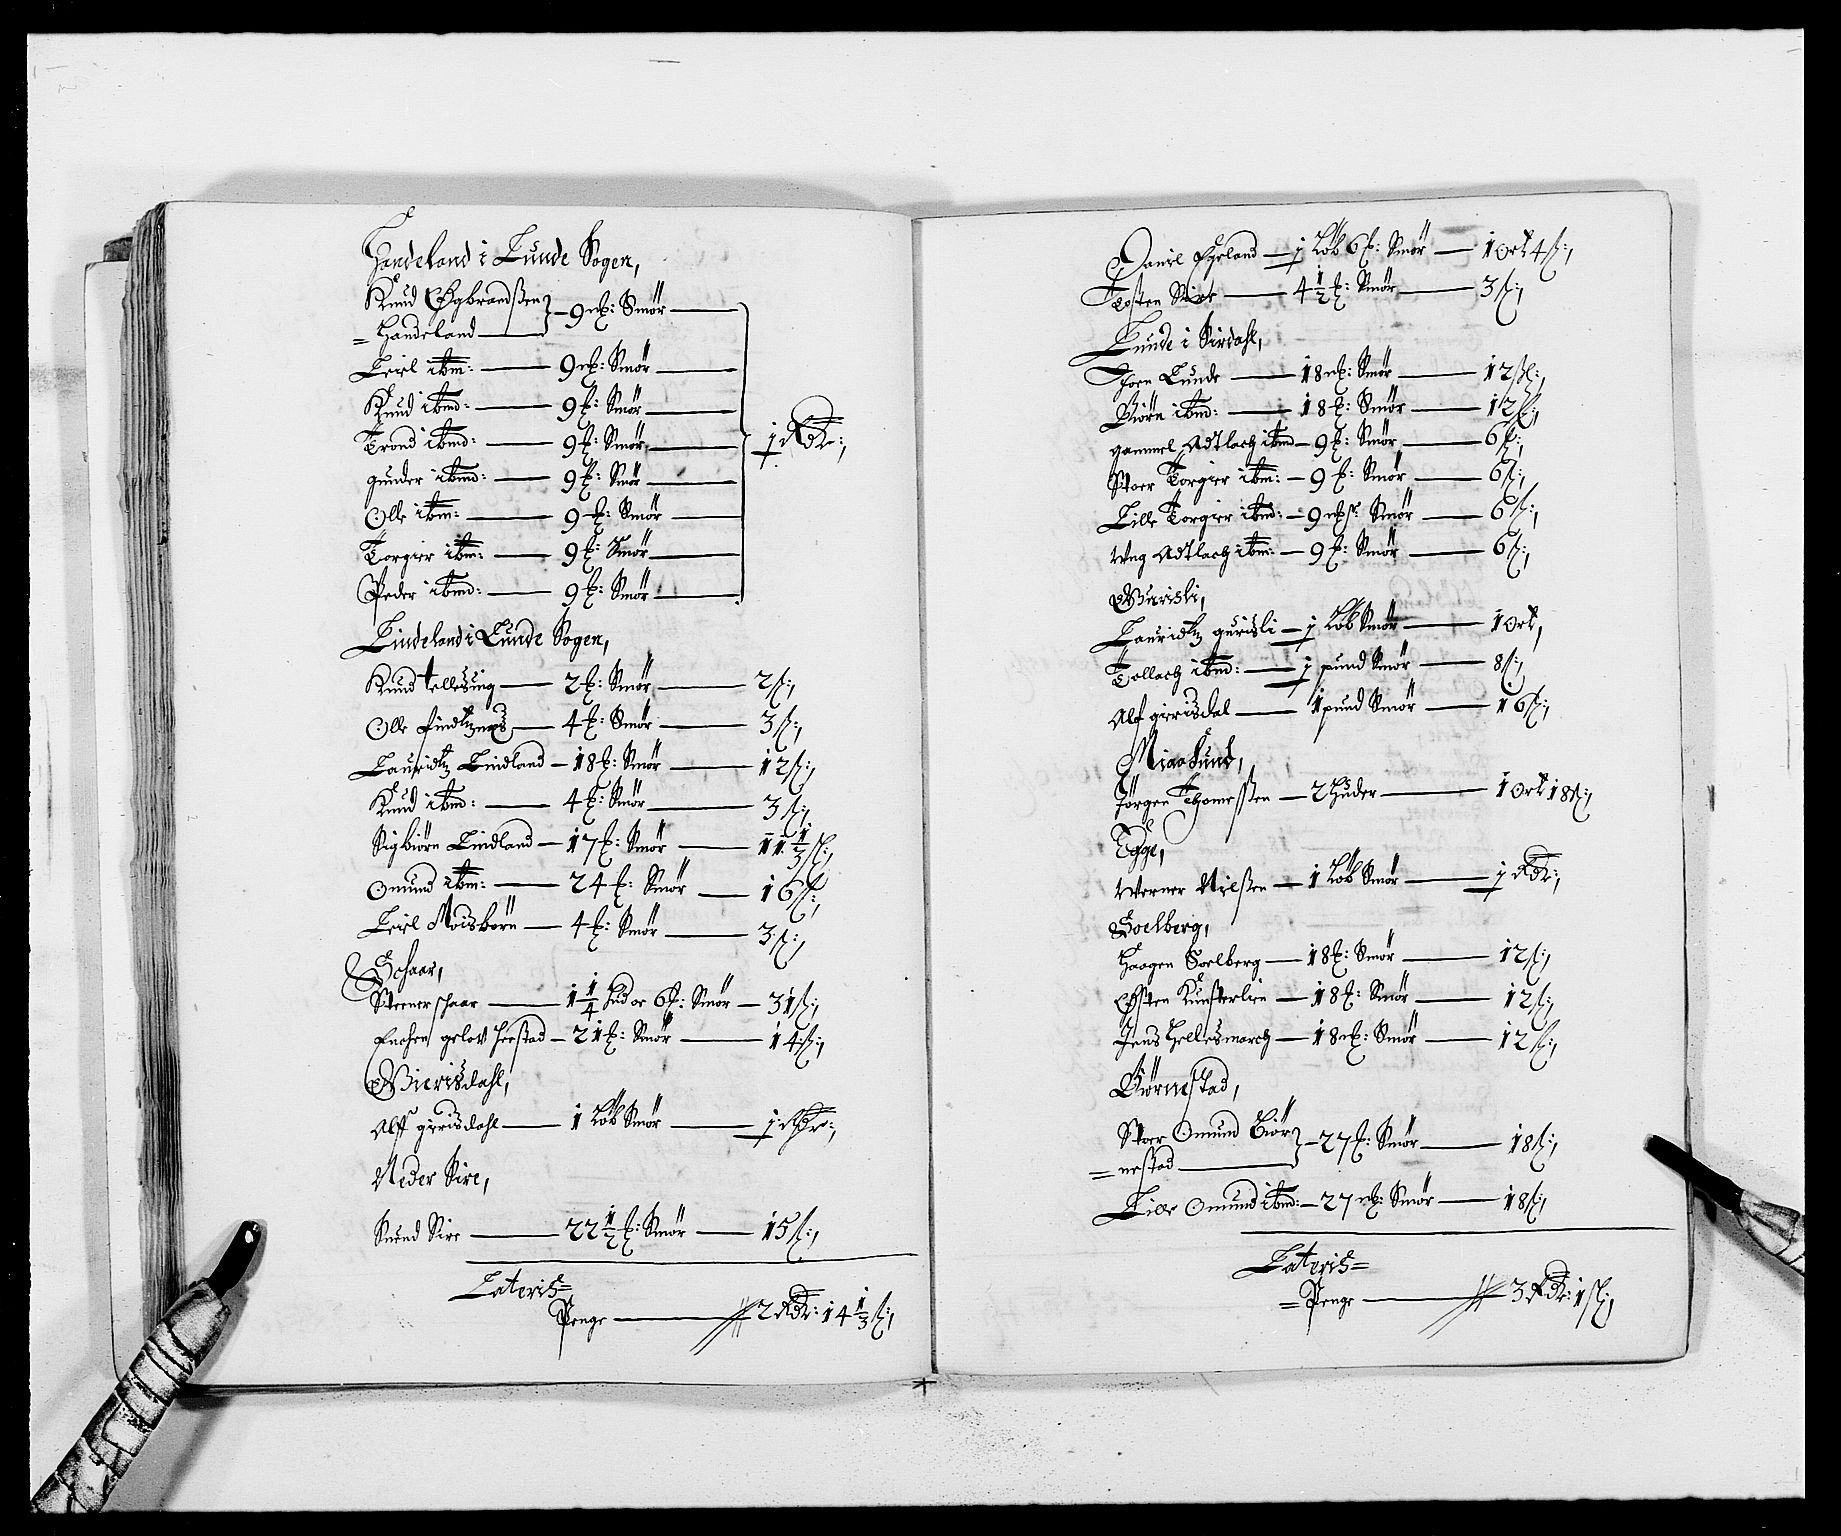 Handeland i Lunde Sogen,
Knud Egbrandßen
= Handeland — 9 mk: Smør
Leiel ibm: — 9 mk: Smør
Knud ibmd: — 9 mk: Smør
Trond ibmd: — 9 mk: Smør
gunder ibmd: — 9 mk: Smør — 1 Rdr:,
Olle ibm: — 9 mk: Smør
Torgier ibm: — 9 mk: Smør
Peder ibmd: — 9 mk: Smør
Lindeland i Lunde Sogen,
Knud — 2 mk: Smør — 2 ß:,
Olle — 4 mk: Smør — 3 ß:,
Lauridtz Lindland — 18 mk: Smør — 12 ß:,
Knud ibmd: — 4 mk: Smør — 3 ß:,
Sigbiørn Lindland — 17 mk: Smør — 11 1/3 ß:,
Omund ibm: — 24 mk: Smør — 16 ß:,
Leiel — 4 mk: Smør — 3 ß:,
Schaar,
Steener schaar — 1 1/4 hud oc 6 mk: Smør — 31 ß:,
Enchen — 21 mk: Smør — 14 ß:,
Gierisdahl,
Alff gierisdahl — 1 Løb Smør — 1 Rdr:,
Neder Sire,
Knud Sire — 22 1/2 mk: Smør — 15 ß:,
Lateris=
Penge — 2 Rdr: 14 1/3 ß:,
Daniel Egeland — 1 Løb 6 mk: Smør — 1 Ort 4 ß:,
Tosten Sire — 4 1/2 mk: Smør — 3 ß:,
Lunde i Sirdahl,
Thoen Lunde — 18 mk: Smør — 12 ß:,
Biørn ibmd: — 18 mk: Smør — 12 ß:,
gammel Adtlach ibmd — 9 mk: Smør — 6 ß:,
Stoer Torgier ibm: — 9 mk: Smør — 6 ß:,
Lille Torgier ibmd: — 9 mk: Smør — 6 ß:,
Ung Adtlach ibm: — 9 mk: Smør — 6 ß:,
Gurisli,
Lauridtz gurisli — 1 Løb Smør — 1 Ort,
Tollach ibmd: — 1 pund Smør — 8 ß:,
Alf gierisdal — 1 pund Smør — 16 ß:,
Miaasund,
Jørgen Thomeßen — 2 huder — 1 Ort 18 ß:,
Egge,
Werner Nielßen — 1 Løb Smør — 1 Rdr:,
Soelberg,
Haagen Soelberg — 18 mk: Smør — 12 ß:,
Efsten — 18 mk: Smør — 12 ß:,
Jens Hellesmarch — 18 mk: Smør — 12 ß:,
Biørnestad,
Stoer Omund Biør
= nestad — 27 mk: Smør — 18 ß:,
Lille Omund ibmd: — 27 mk: Smør — 18 ß,
Lateris=
= Penge — 3 Rdr: 1 ß:,